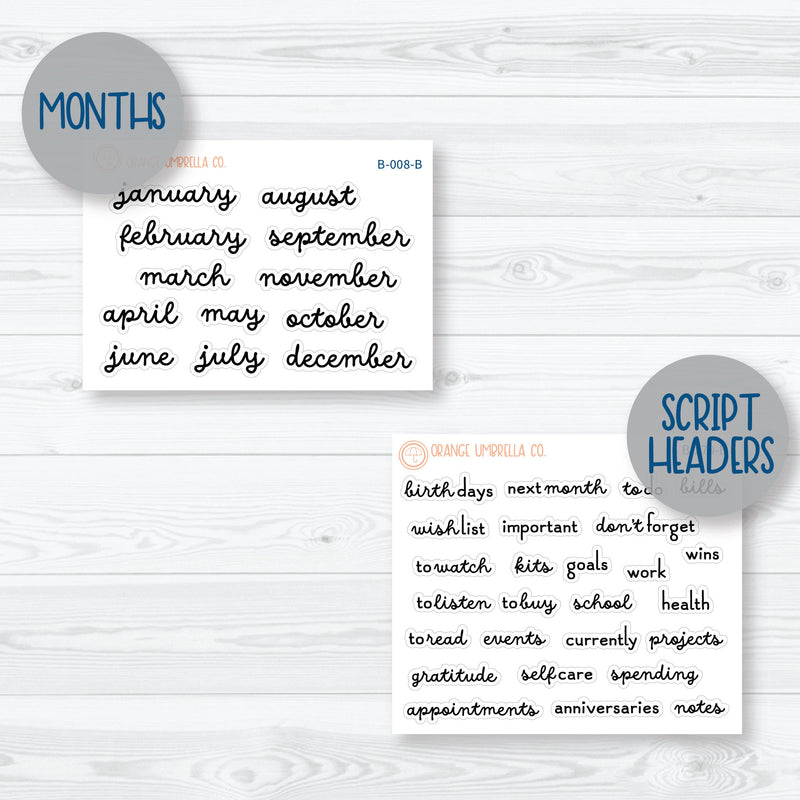 MONTHS
ORANGE UMBRELLA CO. B-008-B
january august
february september
march november
april may october
june july december
SCRIPT
HEADERS
ORANGE UMBRELLA CO.
birthdays next month to do bills
wishlist important don't forget
to watch kits goals work wins
to listen to buy school health
to read events currently projects
gratitude self care spending
appointments anniversaries notes